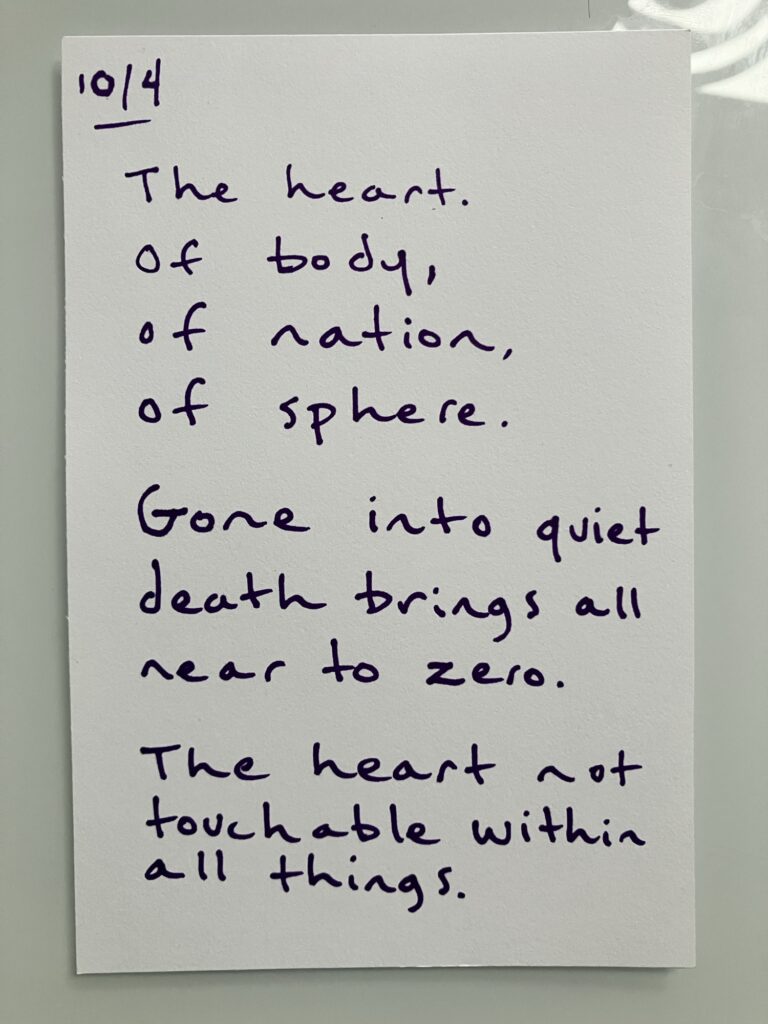 10/4
The heart.
Of body,
of nation,
of sphere.
Gone into quiet
death brings all
near to zero.
The heart not
touchable within
all things.